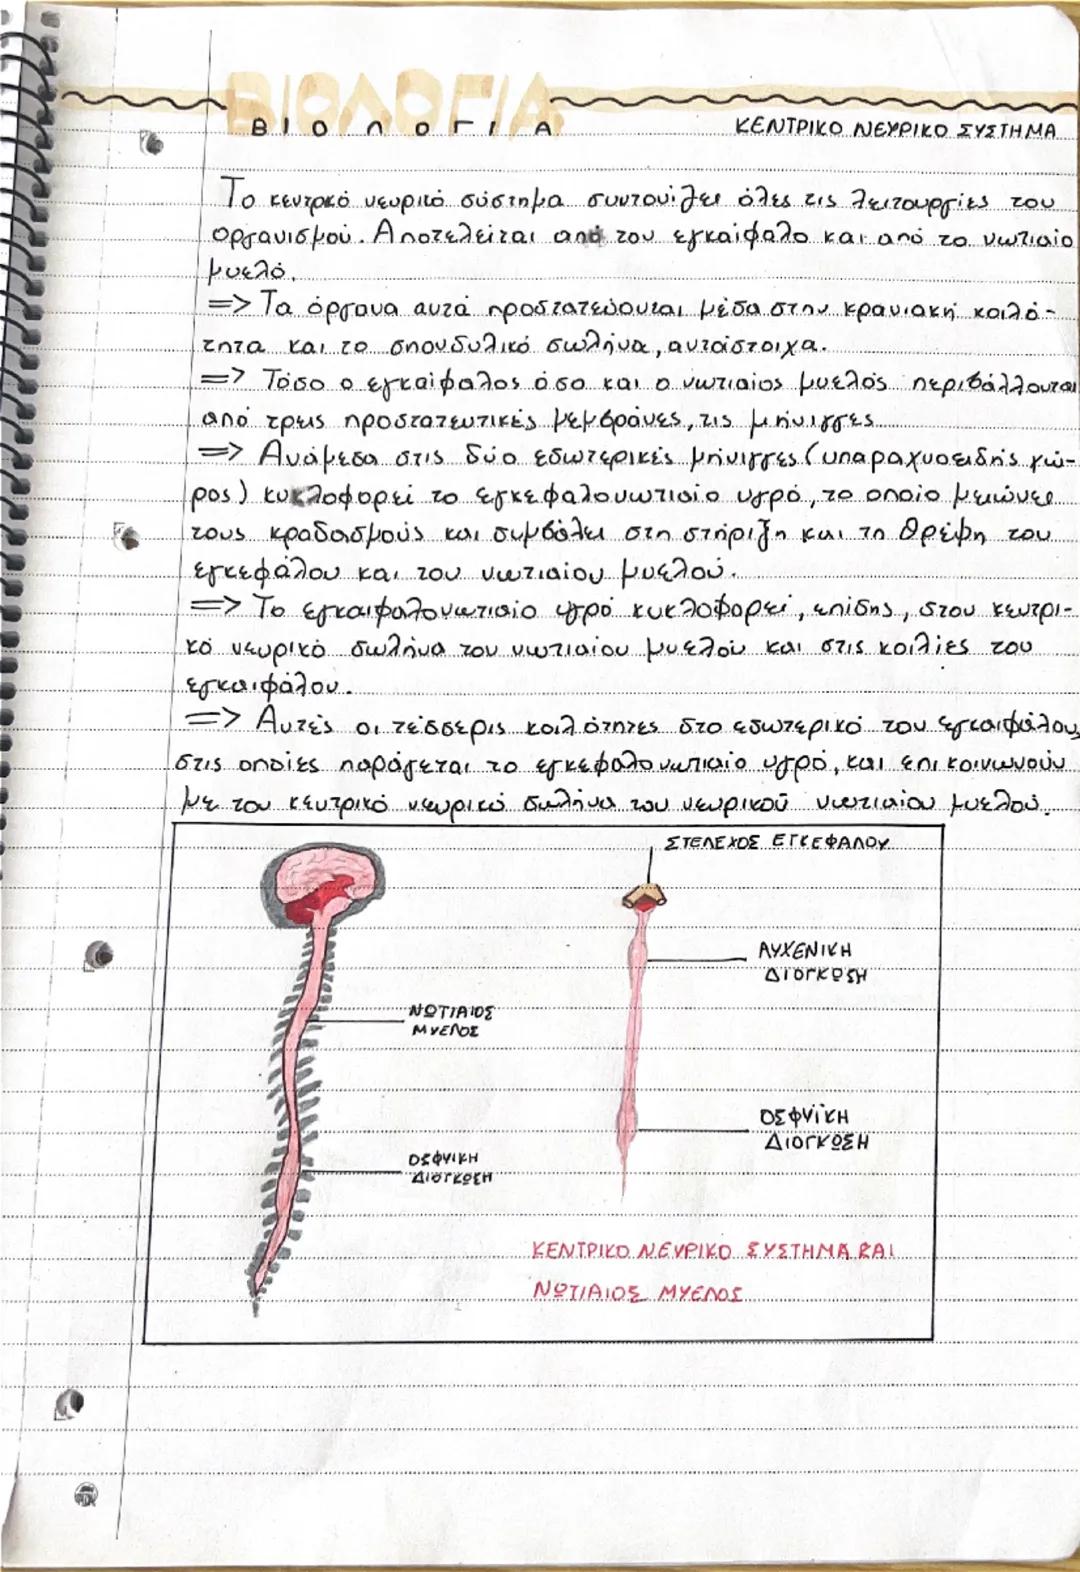 ΒΙΟΛΟΓΙΑ
ΒΙΟΛΟΓΙΑ
ΚΕΝΤΡΙΚΟ ΝΕΥΡΙΚΟ ΣΥΣΤΗΜΑ
Το κεντρκό νευρικό σύστημα συντονίζει όλες τις λειτουργίες του
οργανισμού. Αποτελείται από τον εγκαίφαλο και από το νωτιαίο
μυελό.
=> Τα όργανα αυτά προστατεύονται μέσα στην κρανιακή κοιλό-
τητα και το σπονδυλικό σωλήνα, αντοίστοιχα.
=> Τόσο ο εγκαίφαλος όσο και ο νωτιαίος μυελός περιβάλλονται
από τρεις προστατευτικές μεμβράνες, τις μήνιγγες.
=> Ανάμεσα στις δύο εσωτερικές μήνιγγες (υπαραχνοειδής χώ-
ρος) κυκλοφορεί το εγκεφαλονωτιαίο υγρό, το οποίο μειώνει
τους κραδασμούς και συμβάλει στη στήριξη και τη θρέψη του
εγκεφάλου και του νωτιαίου μυελού.
=> Το εγκαιφαλονωτιαίο υγρό κυκλοφορεί, επίσης, στον κεντρι-
κό νευρικό σωλήνα του νωτιαίου μυελού και στις κοιλίες του
εγκαιφάλου.
=> Αυτές οι τέσσερις κοιλότητες στο εσωτερικό του εγκαιφάλου,
στις οποίες παράγεται το εγκεφαλονωτιαίο υγρό, και επικοινωνούν
με τον κεντρικό νευρικό σωλήνα του νευρικού νωτιαίου μυελού.
ΣΤΕΛΕΧΟΣ ΕΓΚΕΦΑΛΟΥ
ΑΥΧΕΝΙΚΗ
ΔΙΟΓΚΩΣΗ
ΝΩΤΙΑΙΟΣ
ΜΥΕΛΟΣ
ΟΣΦΥΪΚΗ
ΔΙΟΓΚΩΣΗ
ΟΣΦΥΙΚΗ
ΔΙΟΓΚΩΣΗ
ΚΕΝΤΡΙΚΟ ΝΕΥΡΙΚΟ ΣΥΣΤΗΜΑ ΚΑΙ
ΝΩΤΙΑΙΟΣ ΜΥΕΛΟΣ